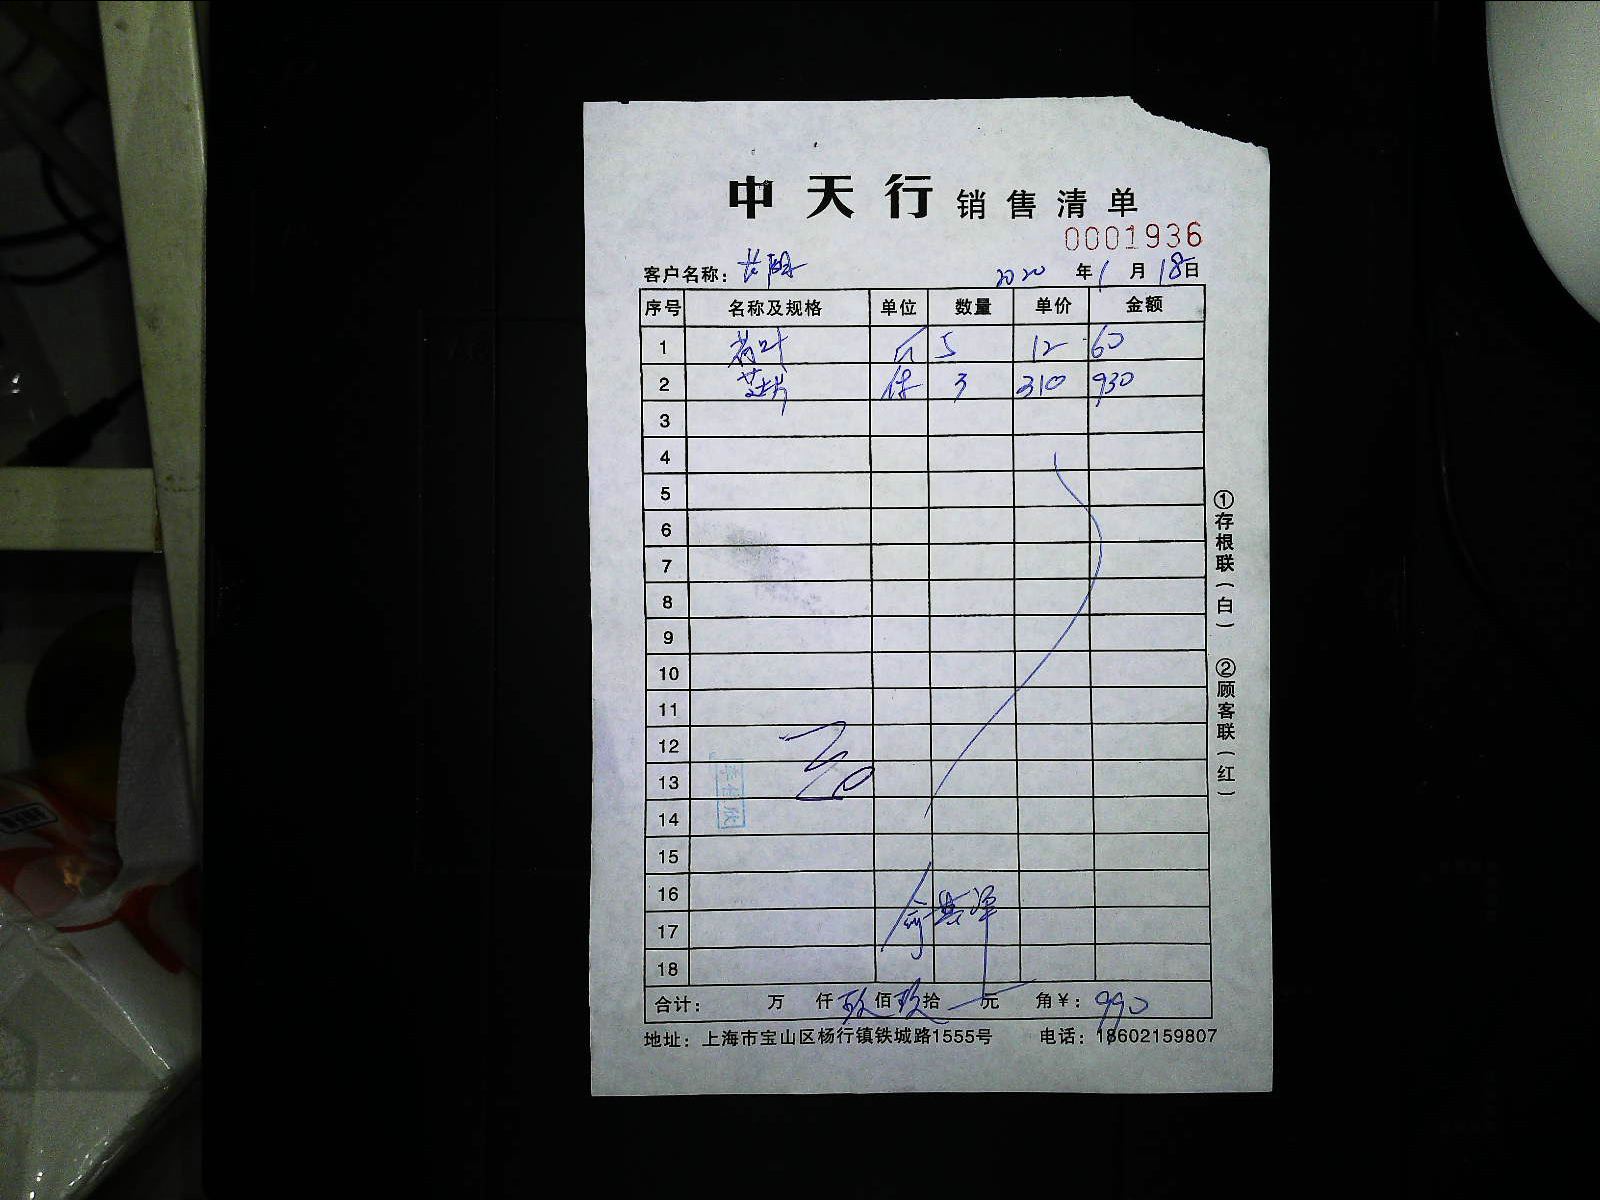 中天行 销售清单
0001936
客户名称: 2020 年 1 月 18 日
序号 名称及规格 单位 数量 单价 金额
1 荷叶 斤 5 12 60
2 件 3 310 930
3
4
5
6
7
8
9
10
11
12
13
14
15
16
17
18
合计: 万 仟 玖 佰 玖 拾 元 角 ¥: 990
地址: 上海市宝山区杨行镇铁城路1555号 电话: 18602159807
①存根联(白) ②顾客联(红)